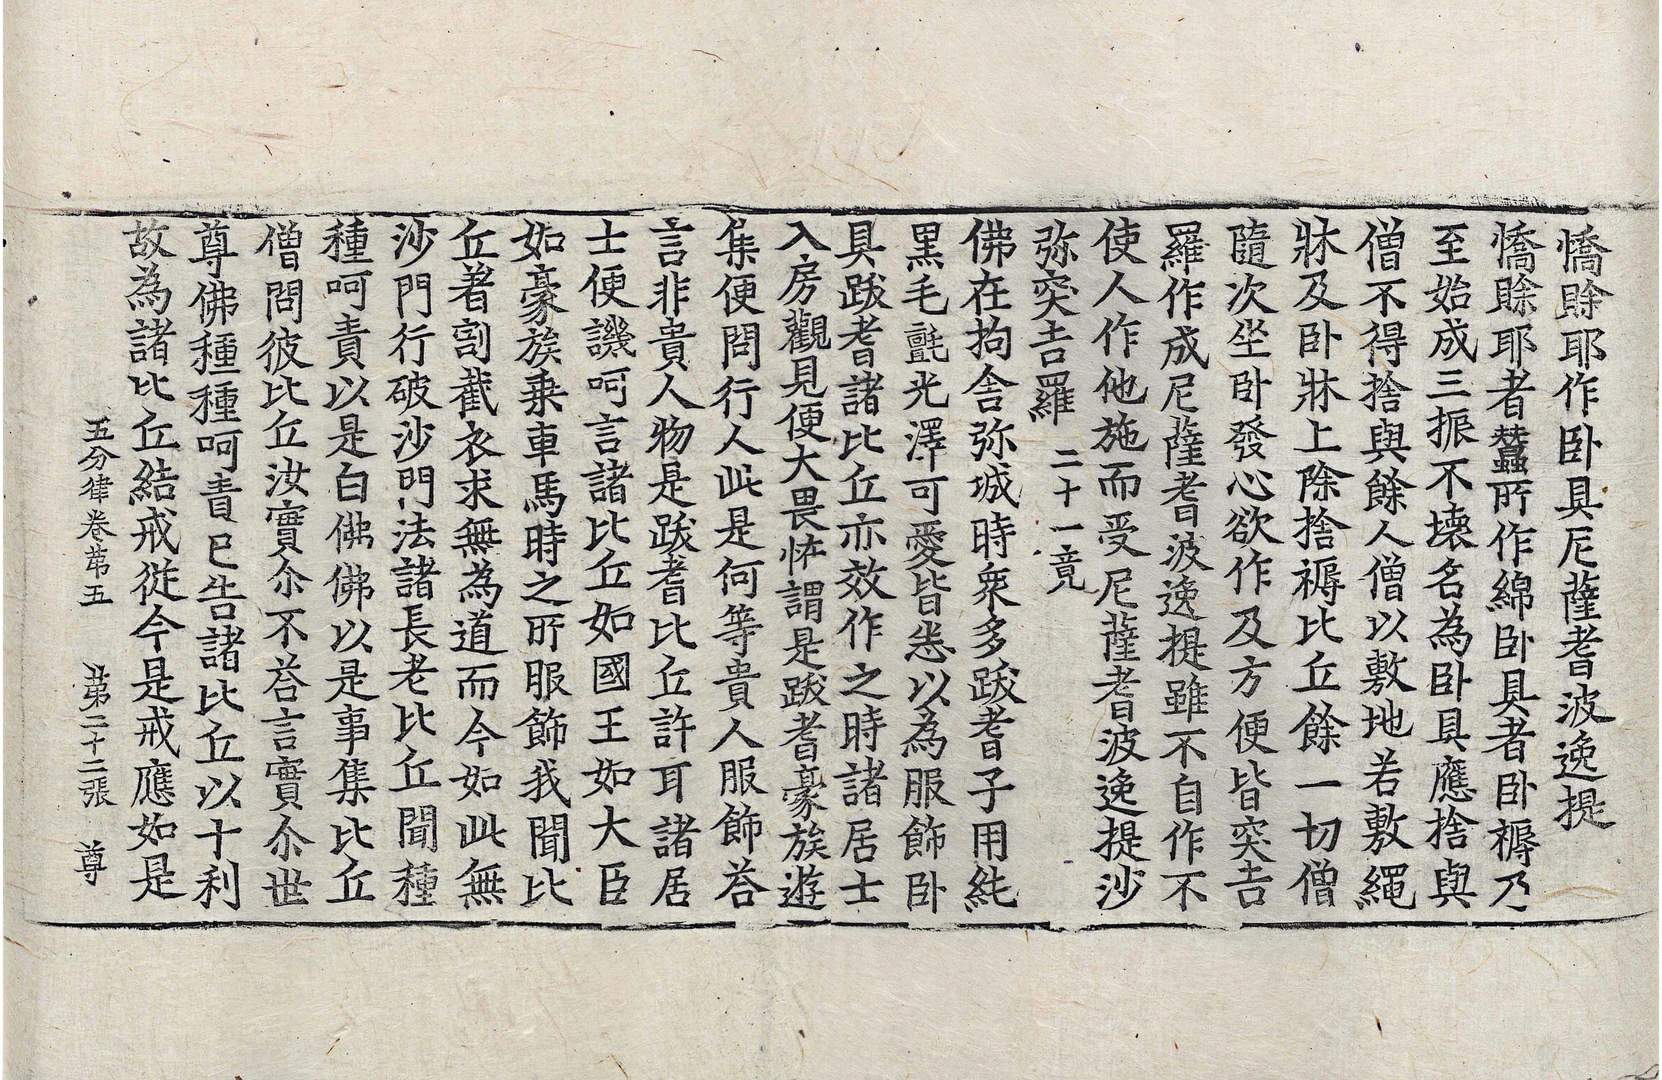 憍賖耶作卧具尼薩耆波逸提
憍賖耶者蠶所作綿卧具者卧褥乃
至始成三振不壞名為卧具應捨與
僧不得捨與餘人僧以敷地若敷繩
牀及卧牀上除捨褥比丘餘一切僧
隨次坐卧發心欲作及方便皆突吉
羅作成尼薩耆波逸提雖不自作不
使人作他施而受尼薩耆波逸提沙
弥突吉羅 二十一竟
佛在拘舍弥城時衆多跋耆子用純
黒毛氀光澤可愛皆悉以為服飾卧
具跋耆諸比丘亦效作之時諸居士
入房觀見便大畏怖謂是跋耆豪族遊
集便問行人此是何等貴人服飾荅
言非貴人物是跋耆比丘許耳諸居
士便譏呵言諸比丘如國王如大臣
如豪族乗車馬時之所服飾我聞比
丘著割截衣求無為道而今如此無
沙門行破沙門法諸長老比丘聞種
種呵責以是白佛佛以是事集比丘
僧問彼比丘汝實尒不荅言實尒世
尊佛種種呵責已告諸比丘以十利
故為諸比丘結戒從今是戒應如是
五分律卷第五 第二十二張 尊